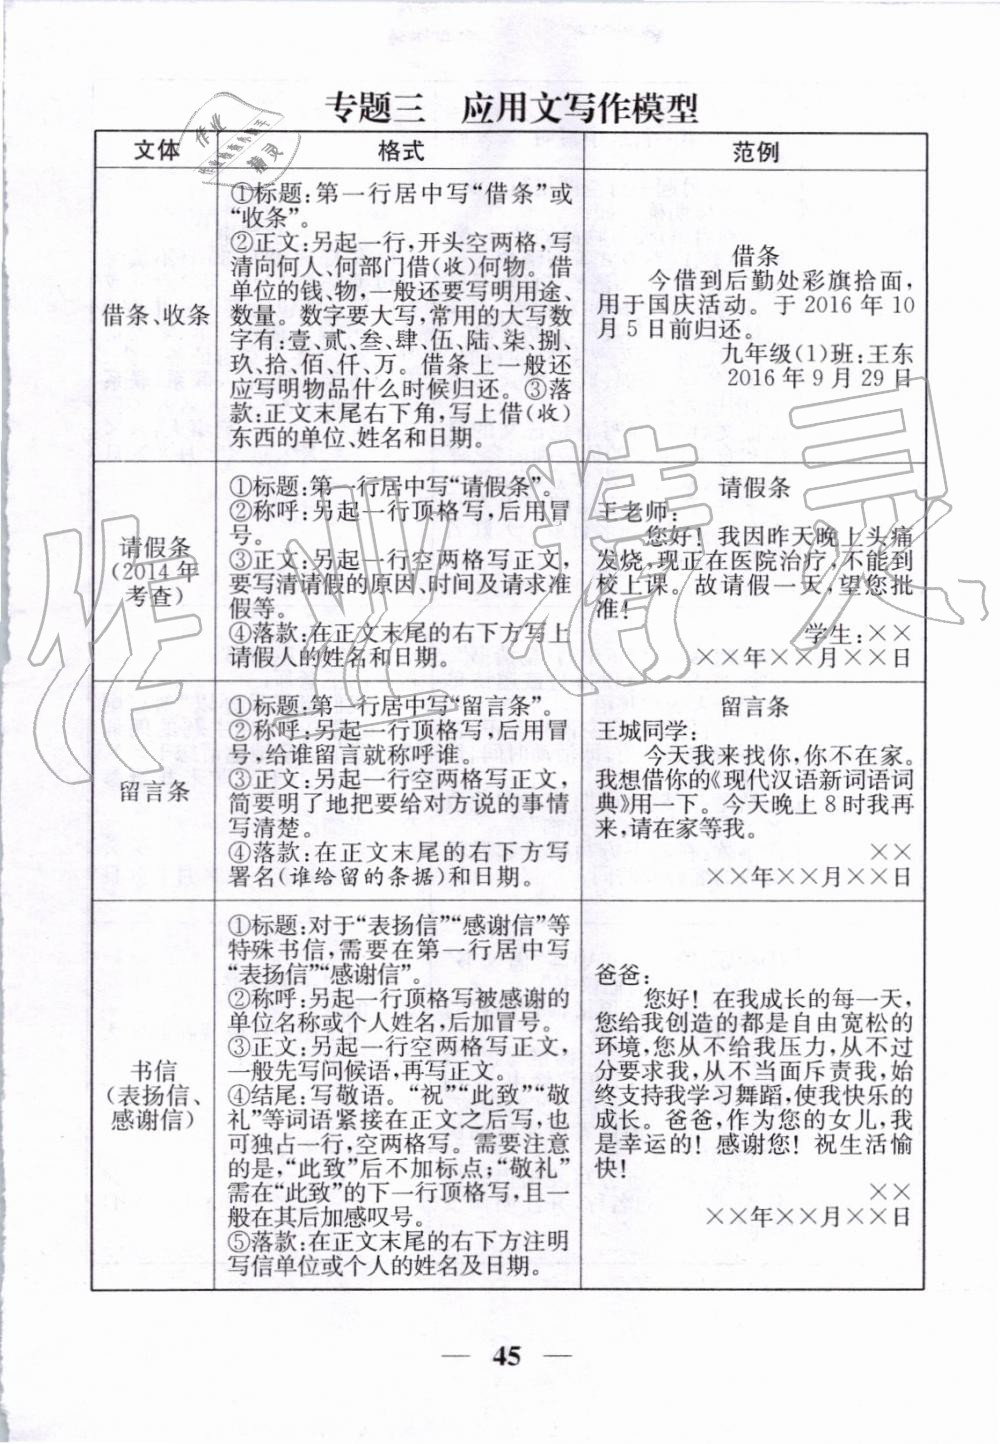 专题三 应用文写作模型
文体
格式
范例
借条、收条
①标题:第一行居中写“借条”或
“收条”。
②正文:另起一行,开头空两格,写
清向何人、何部门借(收)何物。借
单位的钱、物,一般还要写明用途、
数量。数字要大写,常用的大写数
字有:壹、贰、叁、肆、伍、陆、柒、捌、
玖、拾、佰、仟、万。借条上一般还
应写明物品什么时候归还。③落
款:正文末尾右下角,写上借(收)
东西的单位、姓名和日期。
借条
今借到后勤处彩旗拾面,
用于国庆活动。于 2016 年 10
月 5 日前归还。
九年级(1)班:王东
2016 年 9 月 29 日
请假条
(2014 年
考查)
①标题:第一行居中写“请假条”。
②称呼:另起一行顶格写,后用冒
号。
③正文:另起一行空两格写正文,
要写清请假的原因、时间及请求准
假等。
④落款:在正文末尾的右下方写上
请假人的姓名和日期。
请假条
王老师:
您好!我因昨天晚上头痛
发烧,现正在医院治疗,不能到
校上课。故请假一天,望您批
准!
学生:××
××年××月××日
留言条
①标题:第一行居中写“留言条”。
②称呼:另起一行顶格写,后用冒
号,给谁留言就称呼谁。
③正文:另起一行空两格写正文,
简要明了地把要给对方说的事情
写清楚。
④落款:在正文末尾的右下方写
署名(谁给留的条据)和日期。
留言条
王城同学:
今天我来找你,你不在家。
我想借你的《现代汉语新词语词
典》用一下。今天晚上 8 时我再
来,请在家等我。
××
××年××月××日
书信
(表扬信、
感谢信)
①标题:对于“表扬信”“感谢信”等
特殊书信,需要在第一行居中写
“表扬信”“感谢信”。
②称呼:另起一行顶格写被感谢的
单位名称或个人姓名,后加冒号。
③正文:另起一行空两格写正文,
一般先写问候语,再写正文。
④结尾:写敬语。“祝”“此致”“敬
礼”等词语紧接在正文之后写,也
可独占一行,空两格写。需要注意
的是,“此致”后不加标点;“敬礼”
需在“此致”的下一行顶格写,且一
般在其后加感叹号。
⑤落款:在正文末尾的右下方注明
写信单位或个人的姓名及日期。
爸爸:
您好!在我成长的每一天,
您给我创造的都是自由宽松的
环境,您从不给我压力,从不过
分要求我,从不当面斥责我,始
终支持我学习舞蹈,使我快乐的
成长。爸爸,作为您的女儿,我
是幸运的!感谢您!祝生活愉
快!
××
××年××月××日
— 45 —
作业精灵